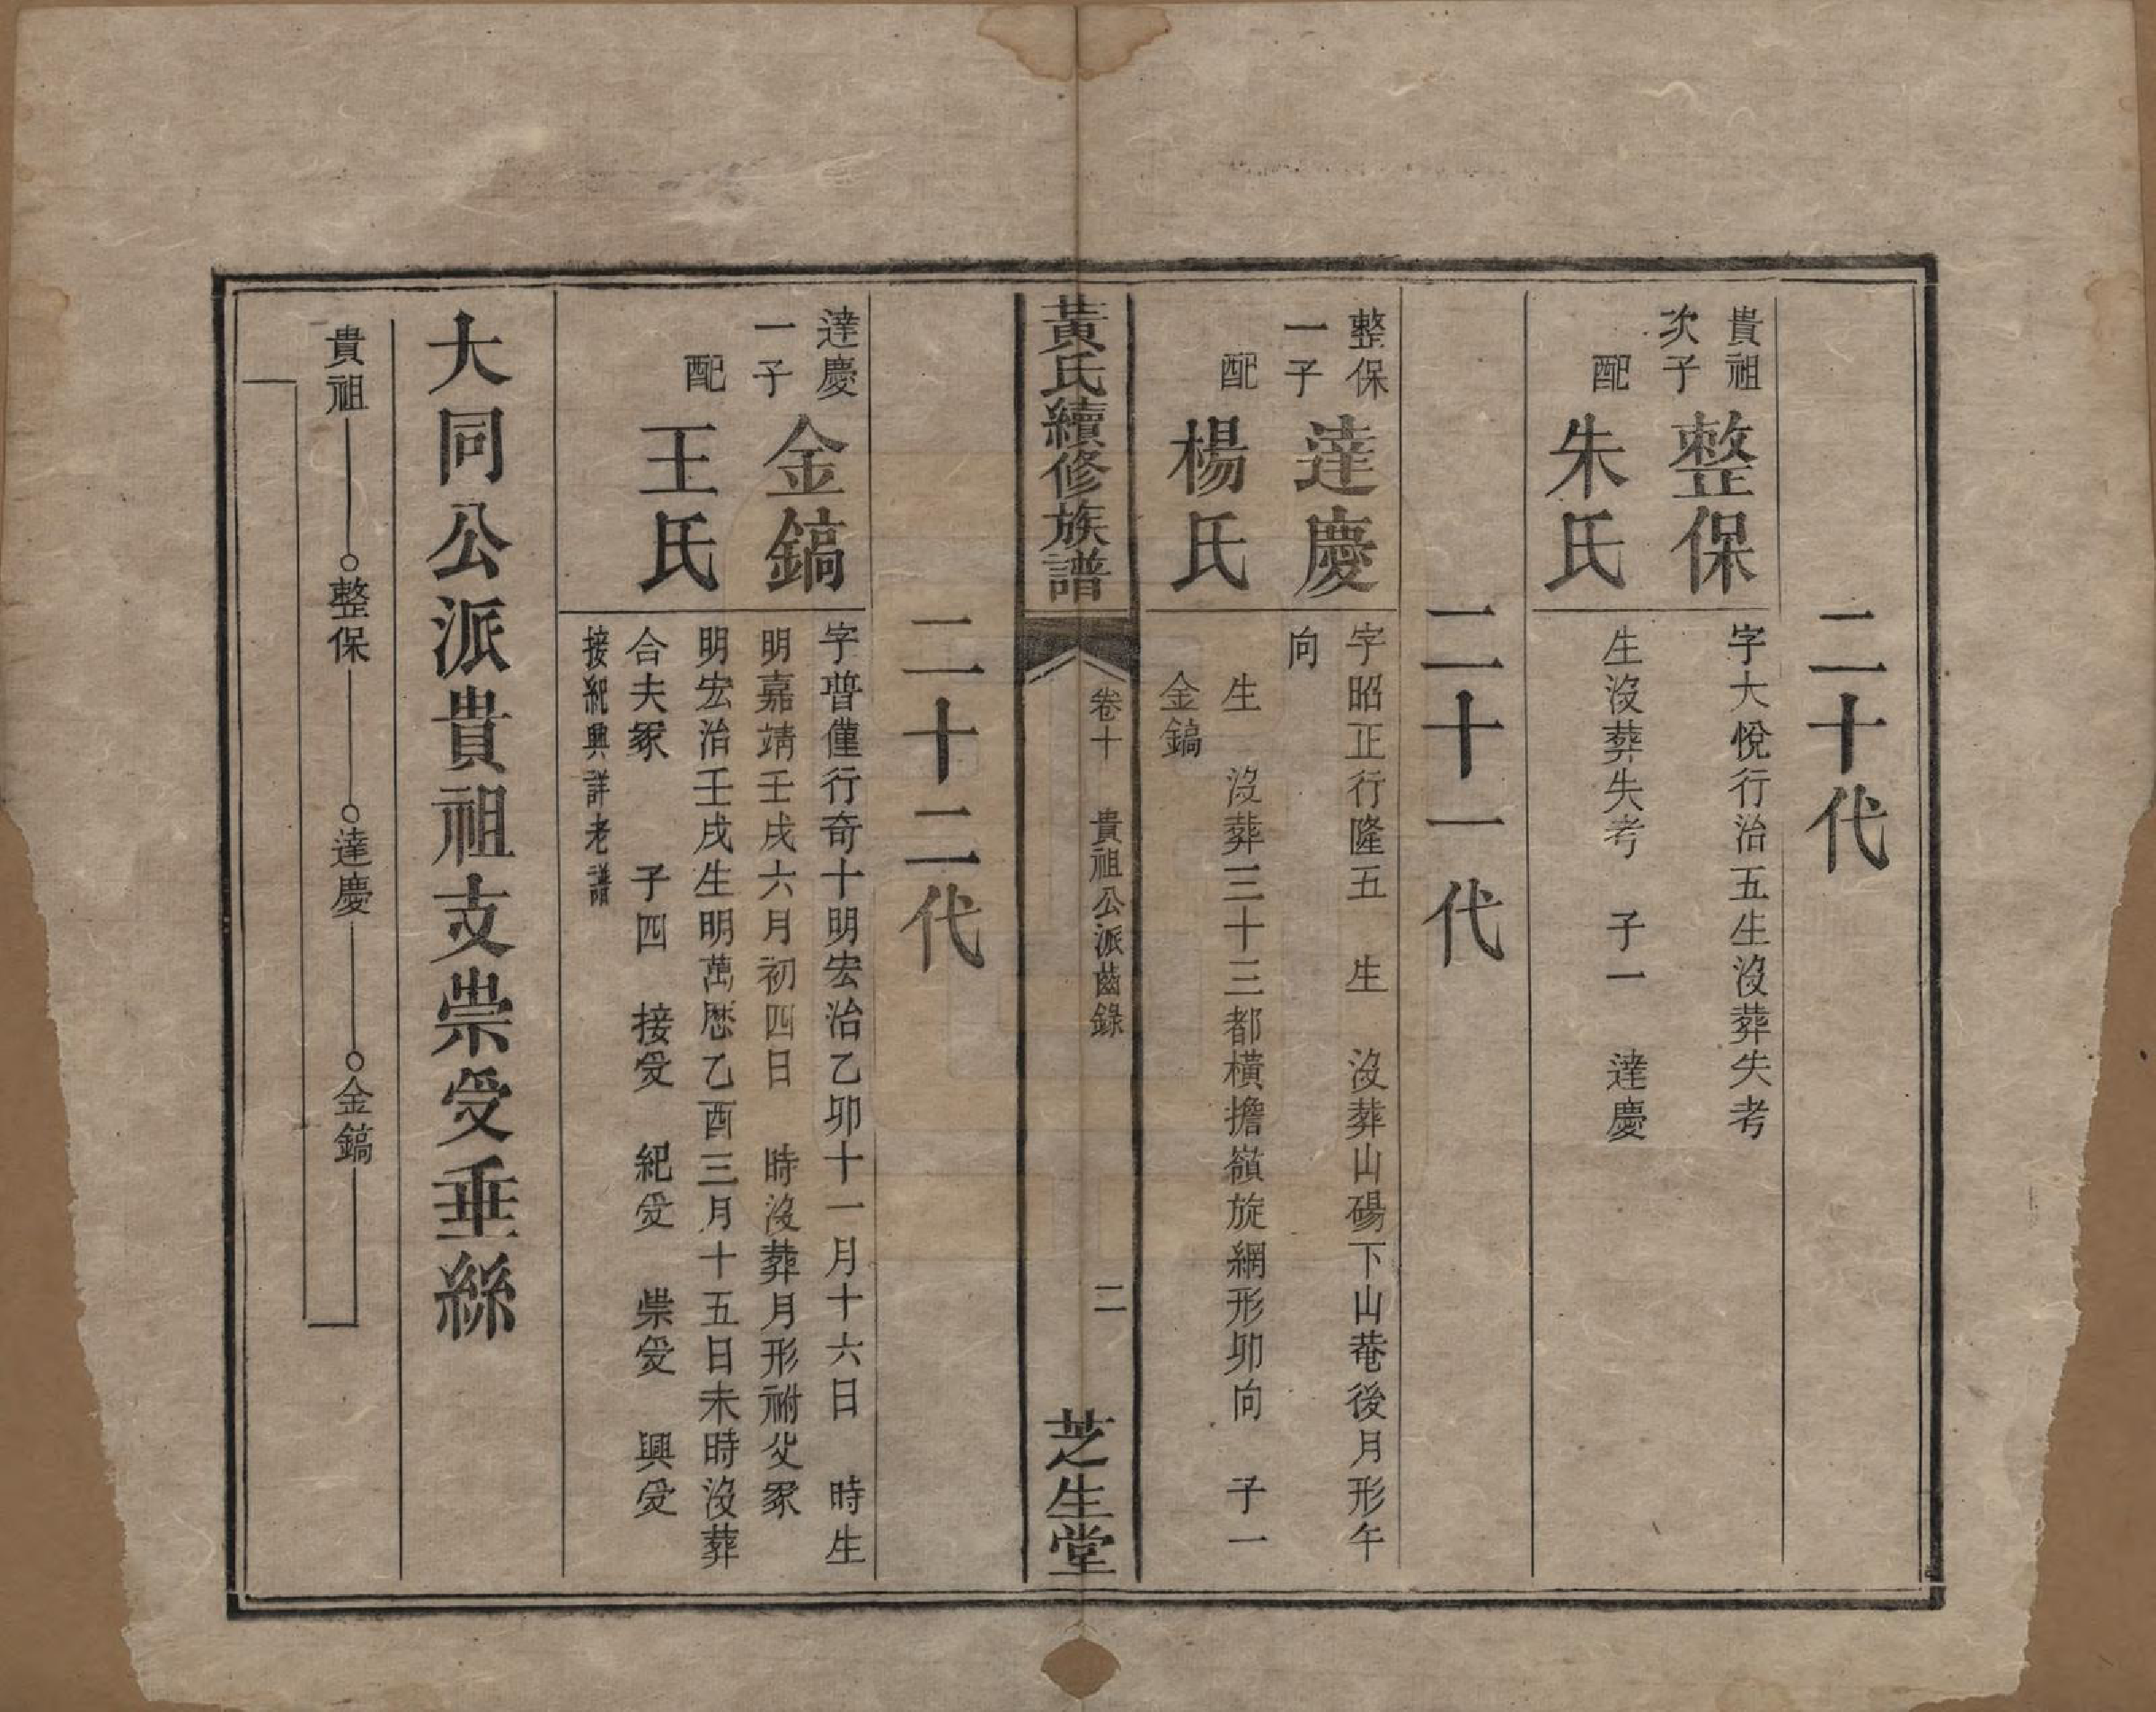 二十代
貴祖
次子
整保
字大悅行治五生沒葬失考
配
朱氏
生沒葬失考 子一 達慶
二十一代
整保
一子
達慶
字昭正行隆五 生 沒葬山碭下山菴後月形午
向
配
楊氏
生 沒葬三十三都橫擔嶺旋網形卯向 子一
金鎬
黃氏續修族譜
卷十 貴祖公派齒錄
二
芝生堂
二十二代
達慶
一子
金鎬
字普僅行奇十明宏治乙卯十一月十六日 時生
明嘉靖壬戌六月初四日 時沒葬月形祔父冢
配
王氏
明宏治壬戌生明萬歷乙酉三月十五日未時沒葬
合夫冢 子四 接受 紀受 祟受 興受
接紀興詳老譜
大同公派貴祖支祟受垂絲
貴祖 整保 達慶 金鎬